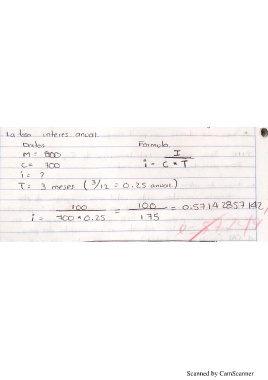 La tasa interes anual.
Datos Formula
M = 800 I
C = 700 i = C * T
i = ?
T = 3 meses ( 3/12 = 0.25 anual )
100 = 100 = 0.57142857142,
i = 700 * 0.25 175
Scanned by CamScanner